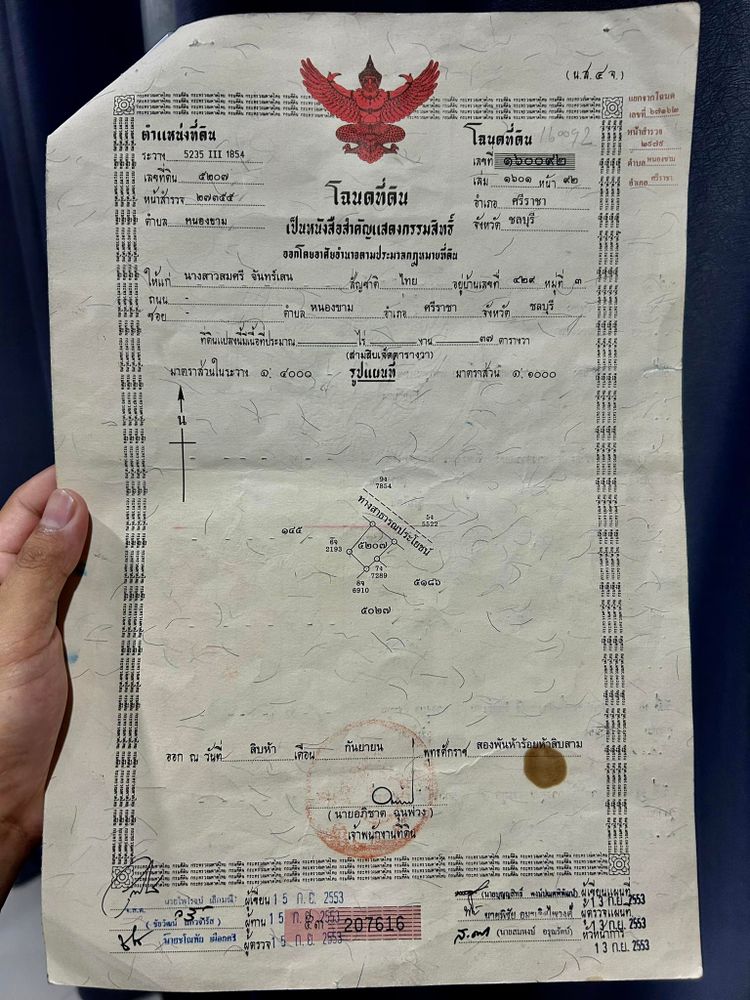 (น.ส.๔ จ.)
แยกจากโฉนด
เลขที่ ๒๗๑๖๒
หน้าสำรวจ
๒๘๗๙
ตำบล หนองขาม
อำเภอ ศรีราชา
ตำแหน่งที่ดิน
ระวาง 5235 III 1854
เลขที่ดิน ๕๒๐๗
หน้าสำรวจ ๒๗๓๔๕
ตำบล หนองขาม
โฉนดที่ดิน 160092
เลขที่ ๑๖๐๐๙๒
เล่ม ๑๖๐๑ หน้า ๙๒
อำเภอ ศรีราชา
จังหวัด ชลบุรี
โฉนดที่ดิน
เป็นหนังสือสำคัญแสดงกรรมสิทธิ์
ออกโดยอาศัยอำนาจตามประมวลกฎหมายที่ดิน
ให้แก่ นางสาวสมศรี จันทร์เสน สัญชาติ ไทย อยู่บ้านเลขที่ ๔๒๙ หมู่ที่ ๓
ถนน -
ซอย - ตำบล หนองขาม อำเภอ ศรีราชา จังหวัด ชลบุรี
ที่ดินแปลงนี้มีเนื้อที่ประมาณ - ไร่ - งาน ๓๗ ตารางวา
(สามสิบเจ็ดตารางวา)
มาตราส่วนในระวาง ๑:๔๐๐๐ รูปแผนที่ มาตราส่วน ๑:๑๐๐๐
น
9ง
7854
ทางสาธารณประโยชน์
5ง
5522
๑๔๕
6จ
2193
๕๒๐๗
7ง
7289
8จ
6910
๕๑๘๖
๕๐๒๗
ออก ณ วันที่ สิบห้า เดือน กันยายน พุทธศักราช สองพันห้าร้อยห้าสิบสาม
(นายอภิชาต ฉุนพ่วง)
เจ้าพนักงานที่ดิน
ผู้เขียน 15 ก.ย. 2553
ผู้ทาน 15 ก.ย. 2553
ผู้ตรวจ 15 ก.ย. 2553
207616
ผู้เขียนแผนที่
13 ก.ย. 2553
ผู้ตรวจแผนที่
13 ก.ย. 2553
หัวหน้าการ
13 ก.ย. 2553